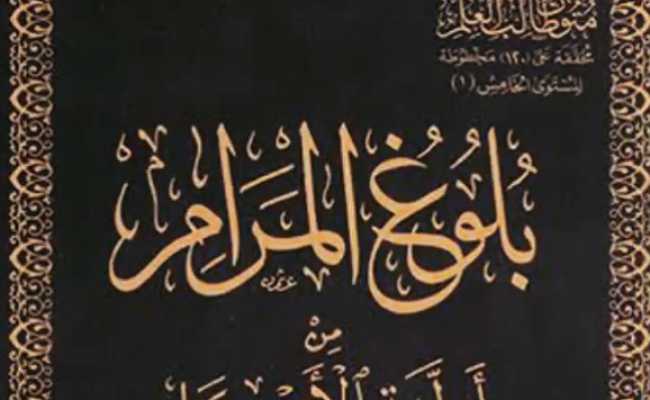 متون طالب العلم
محققة على (١٢٠) مخطوطة
المستوى الخامس (١)
بُلُوغُ المَرَامِ
مِنْ